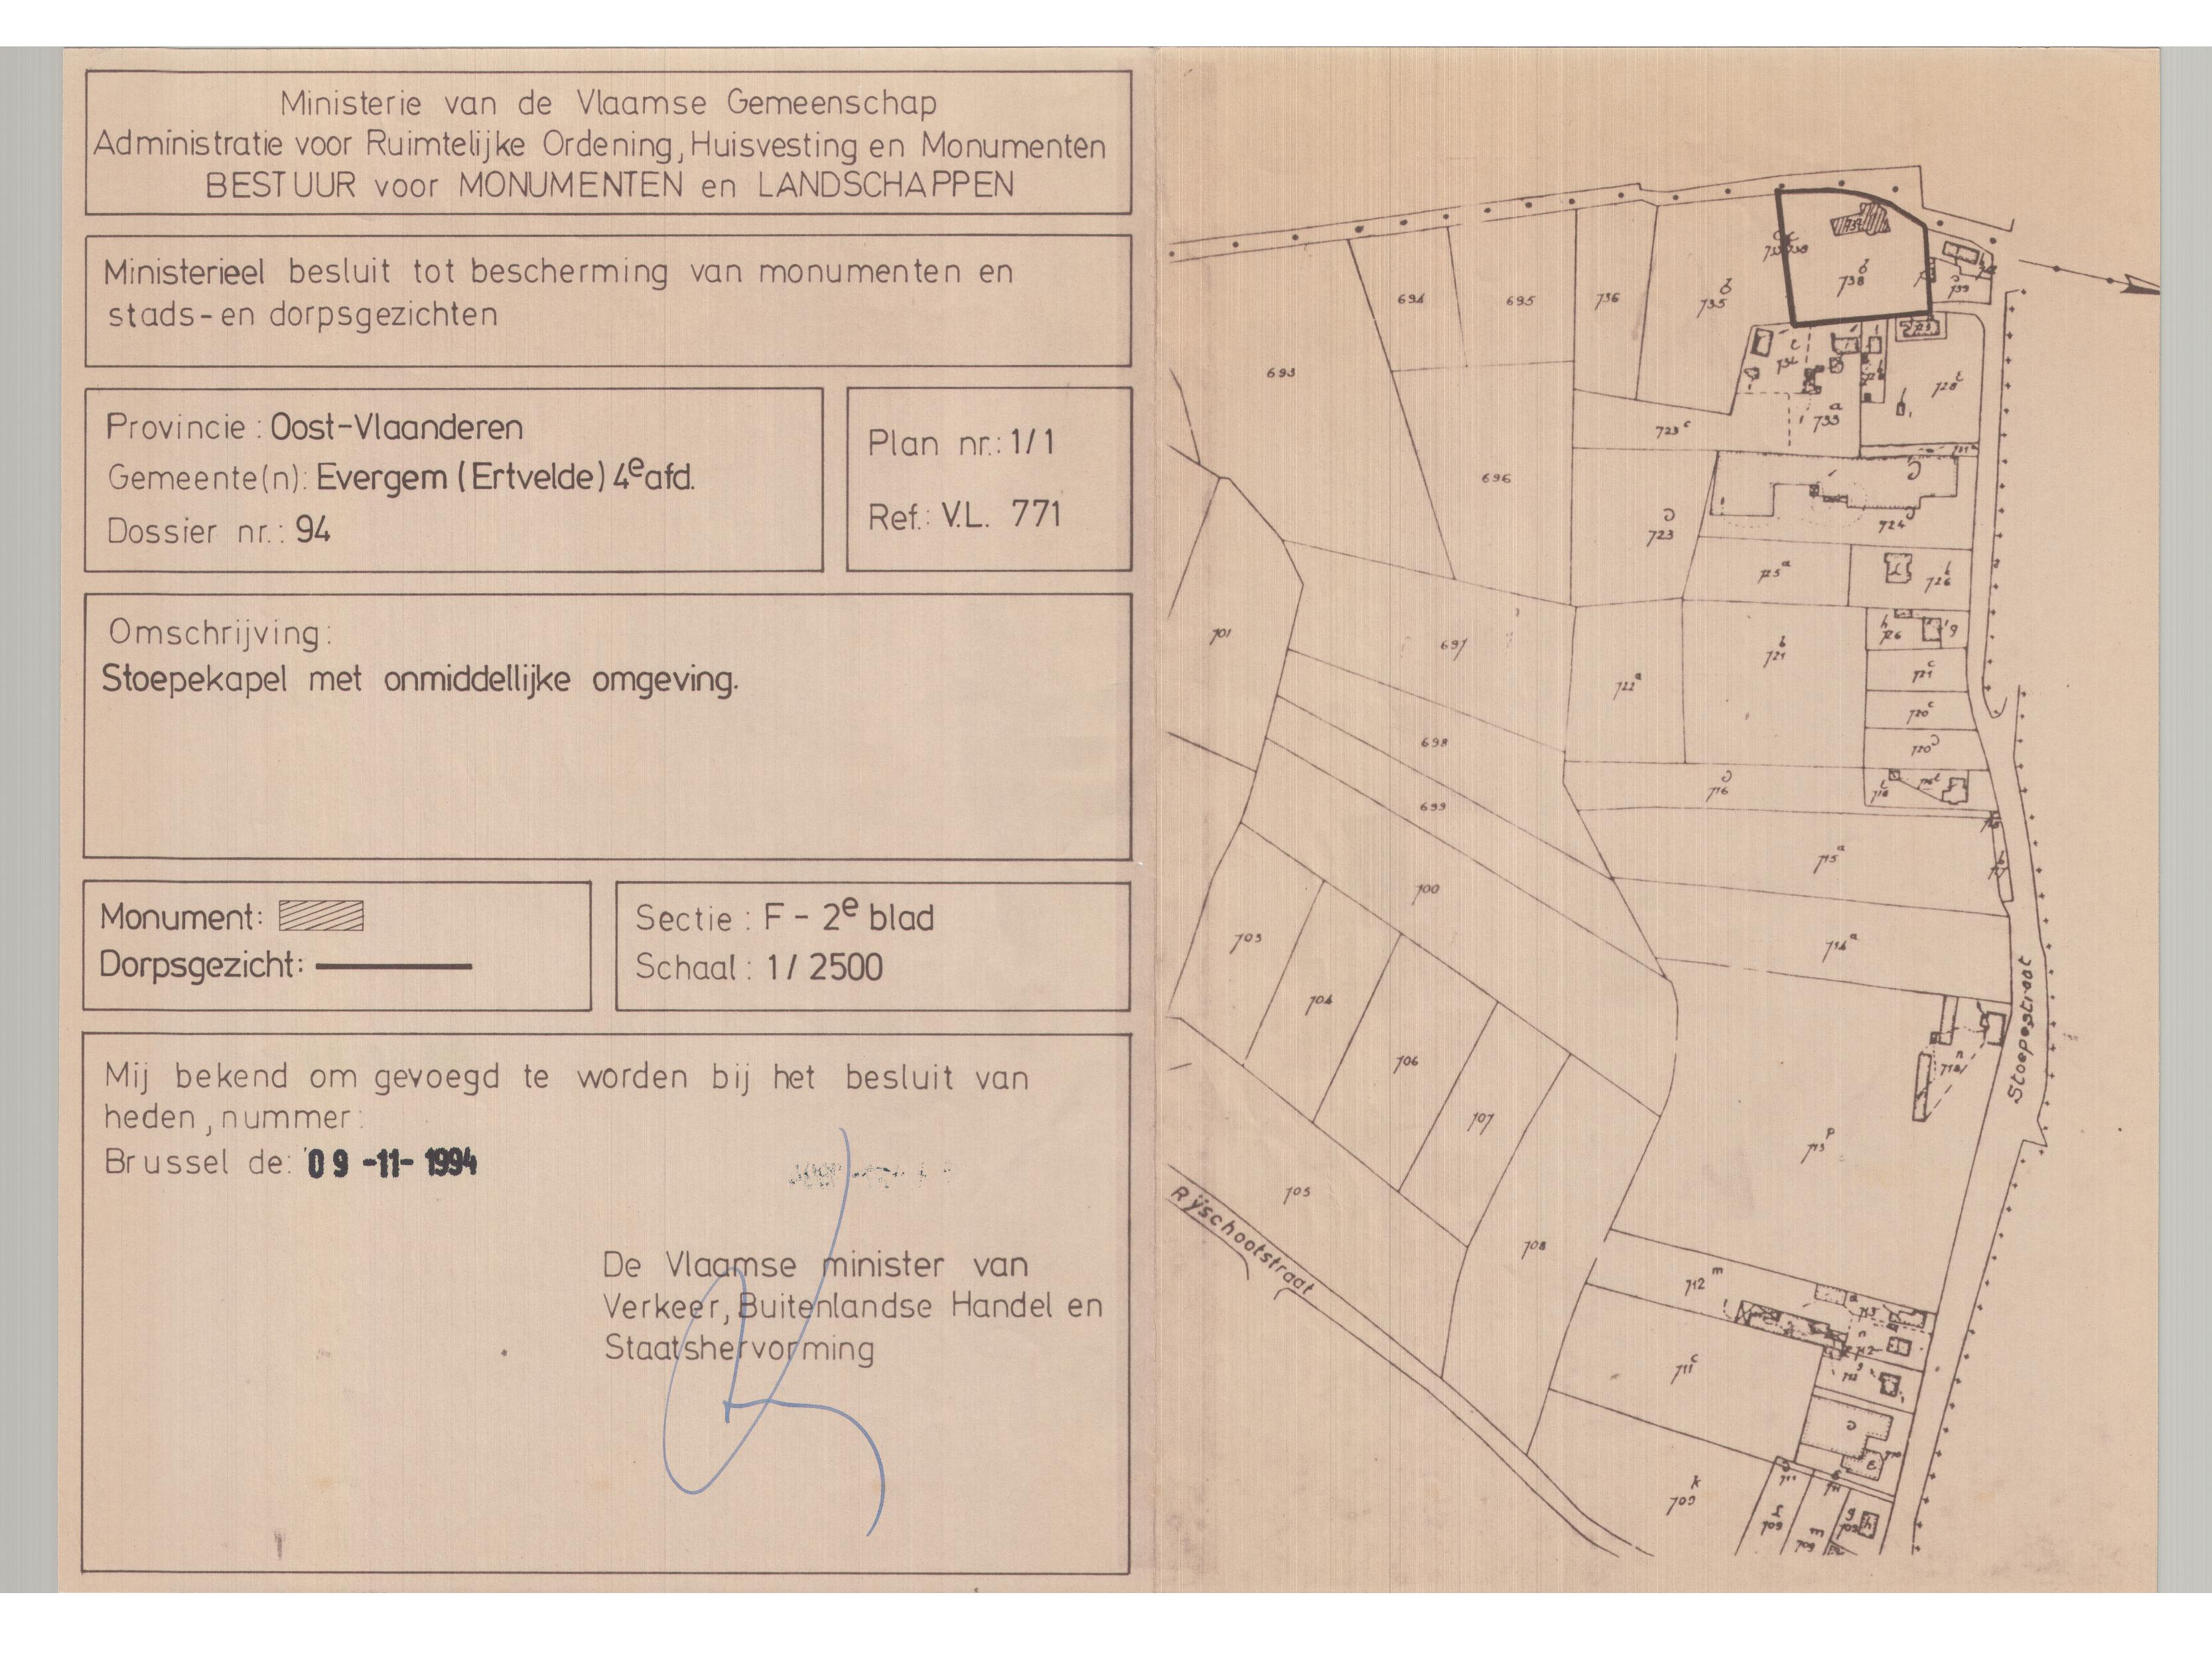 Ministerie van de Vlaamse Gemeenschap
Administratie voor Ruimtelijke Ordening, Huisvesting en Monumenten
BESTUUR voor MONUMENTEN en LANDSCHAPPEN
Ministerieel besluit tot bescherming van monumenten en
stads-en dorpsgezichten
Provincie : Oost-Vlaanderen
Gemeente(n): Evergem (Ertvelde) 4e afd.
Dossier nr.: 94
Plan nr.: 1/1
Ref.: V.L. 771
Omschrijving:
Stoepekapel met onmiddellijke omgeving.
Monument:
Dorpsgezicht:
Sectie : F - 2e blad
Schaal : 1/2500
Mij bekend om gevoegd te worden bij het besluit van
heden, nummer:
Brussel de: 09-11-1994
De Vlaamse minister van
Verkeer, Buitenlandse Handel en
Staatshervorming
693
694
695
736
735 b
738 b
696
723 c
733 a
728
723
724
725 a
726
701
697
722 a
721 b
721 c
720 c
720
698
699
716
715 a
700
714 a
703
704
706
707
705
708
713 p
712 m
711 c
709 k
709
709 m
709 g
Stoepestraat
Rijschootstraat